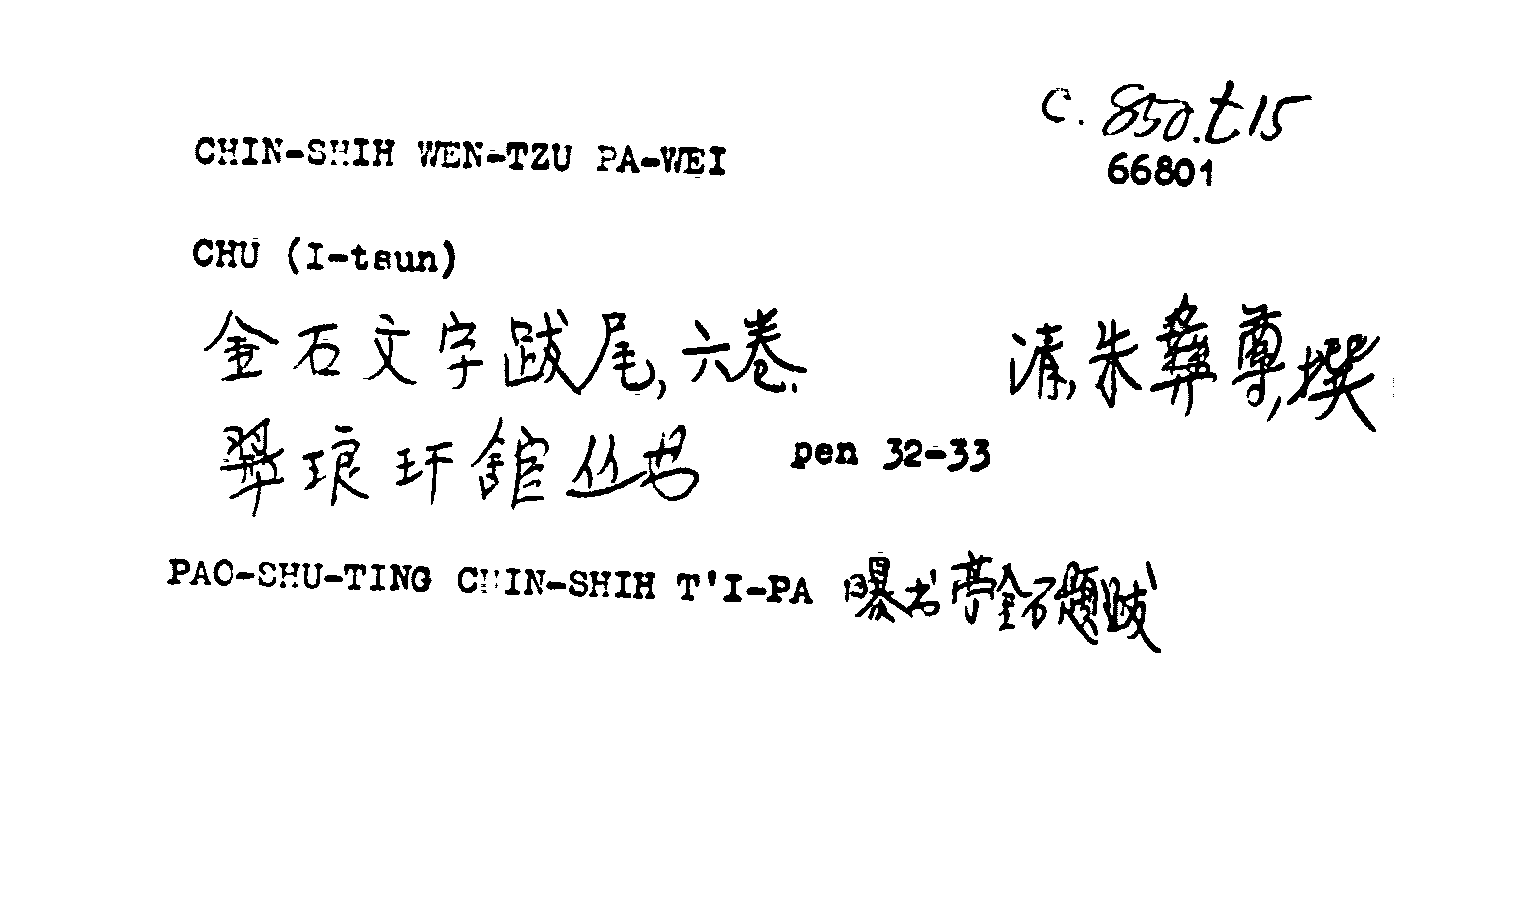 C. 850.t15
CHIN-SHIH WEN-TZU PA-WEI
66801
CHU (I-tsun)
金石文字跋尾,六卷. 清,朱彝尊,撰
翠琅玕館丛书 pen 32-33
PAO-SHU-TING CHIN-SHIH T'I-PA 曝书亭金石题跋